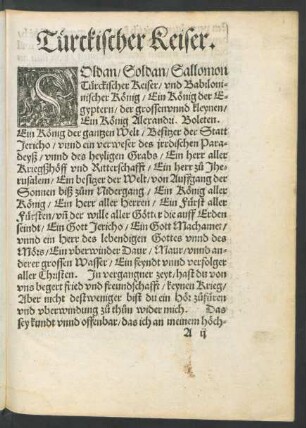 Türckischer Keiser.
SOldan/ Soldan/ Sallomon
Türckischer Keiser/ vnd Babiloni-
nischer König/ Ein König der E-
gyptern/ der grossen vnnd kleynen/
Ein König Alexandri. Boleten.
Ein König der gantzen Welt/ Besitzer der Statt
Jericho/ vnnd ein verweser des jrrdischen Para-
deyß/ vnnd des heyligen Grabs/ Ein herr aller
Kriegßhöff vnd Ritterschafft/ Ein herr zu Jhe-
rusalem/ Ein besitzer der Welt/ von Auffgang der
Sonnen biß zum Nidergang/ Ein König aller
König/ Ein Herr aller Herren/ Ein Fürst aller
Fürsten/ vn̄ der wille aller Götter die auff Erden
seindt/ Ein Gott Jericho/ Ein Gott Machamet/
vnnd ein Herr des lebendigen Gottes vnnd des
Mörs/ Ein vberwinder Daur/ Maur/ vnnd an-
derer grossen Wasser/ Ein feyndt vnnd verfolger
aller Christen. In vergangner zeyt/ hast du von
vns begert fried vnd freundschafft/ keynen Krieg/
Aber nicht destweniger bist du ein hör zůfüren
vnd vberwindung zu thůn wider mich. Das
sey kundt vnnd offenbar/ das ich an meinem höch-
A ij